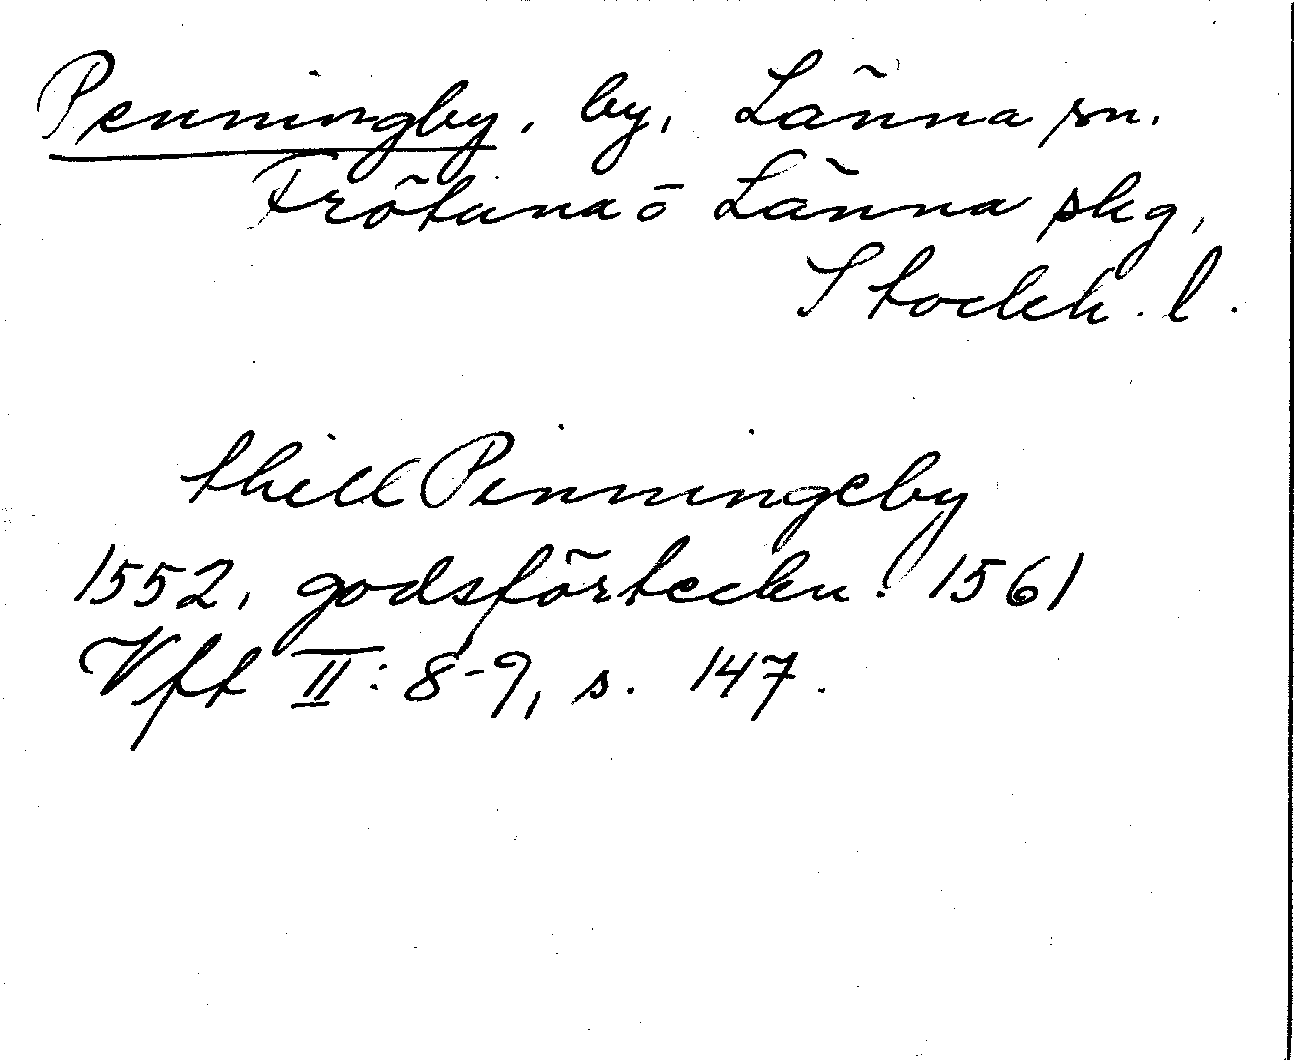 Penningby, by, Länna sn.
Frötuna o Länna skg,
Stockh. l.
thill Penningeby
1552, godsförteckn. 1561
Vft II: 8-9, s. 147.